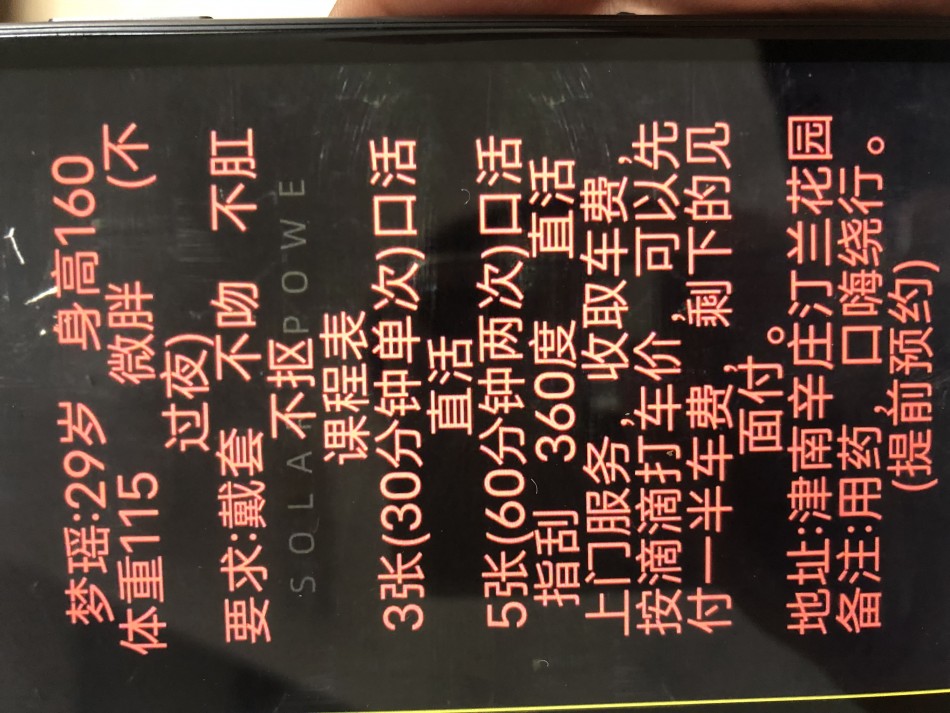 梦瑶:29岁 身高160
体重115 微胖 (不
过夜)
要求:戴套 不吻 不肛
不抠
SOLAR POWE
课程表
3张(30分钟单次)口活
直活
5张(60分钟两次)口活
指刮 360度 直活
上门服务 收取车费,
按滴滴打车价,可以先
付一半车费,剩下的见
面付。
地址:津南辛庄汀兰花园
备注:用药,口嗨绕行。
(提前预约)